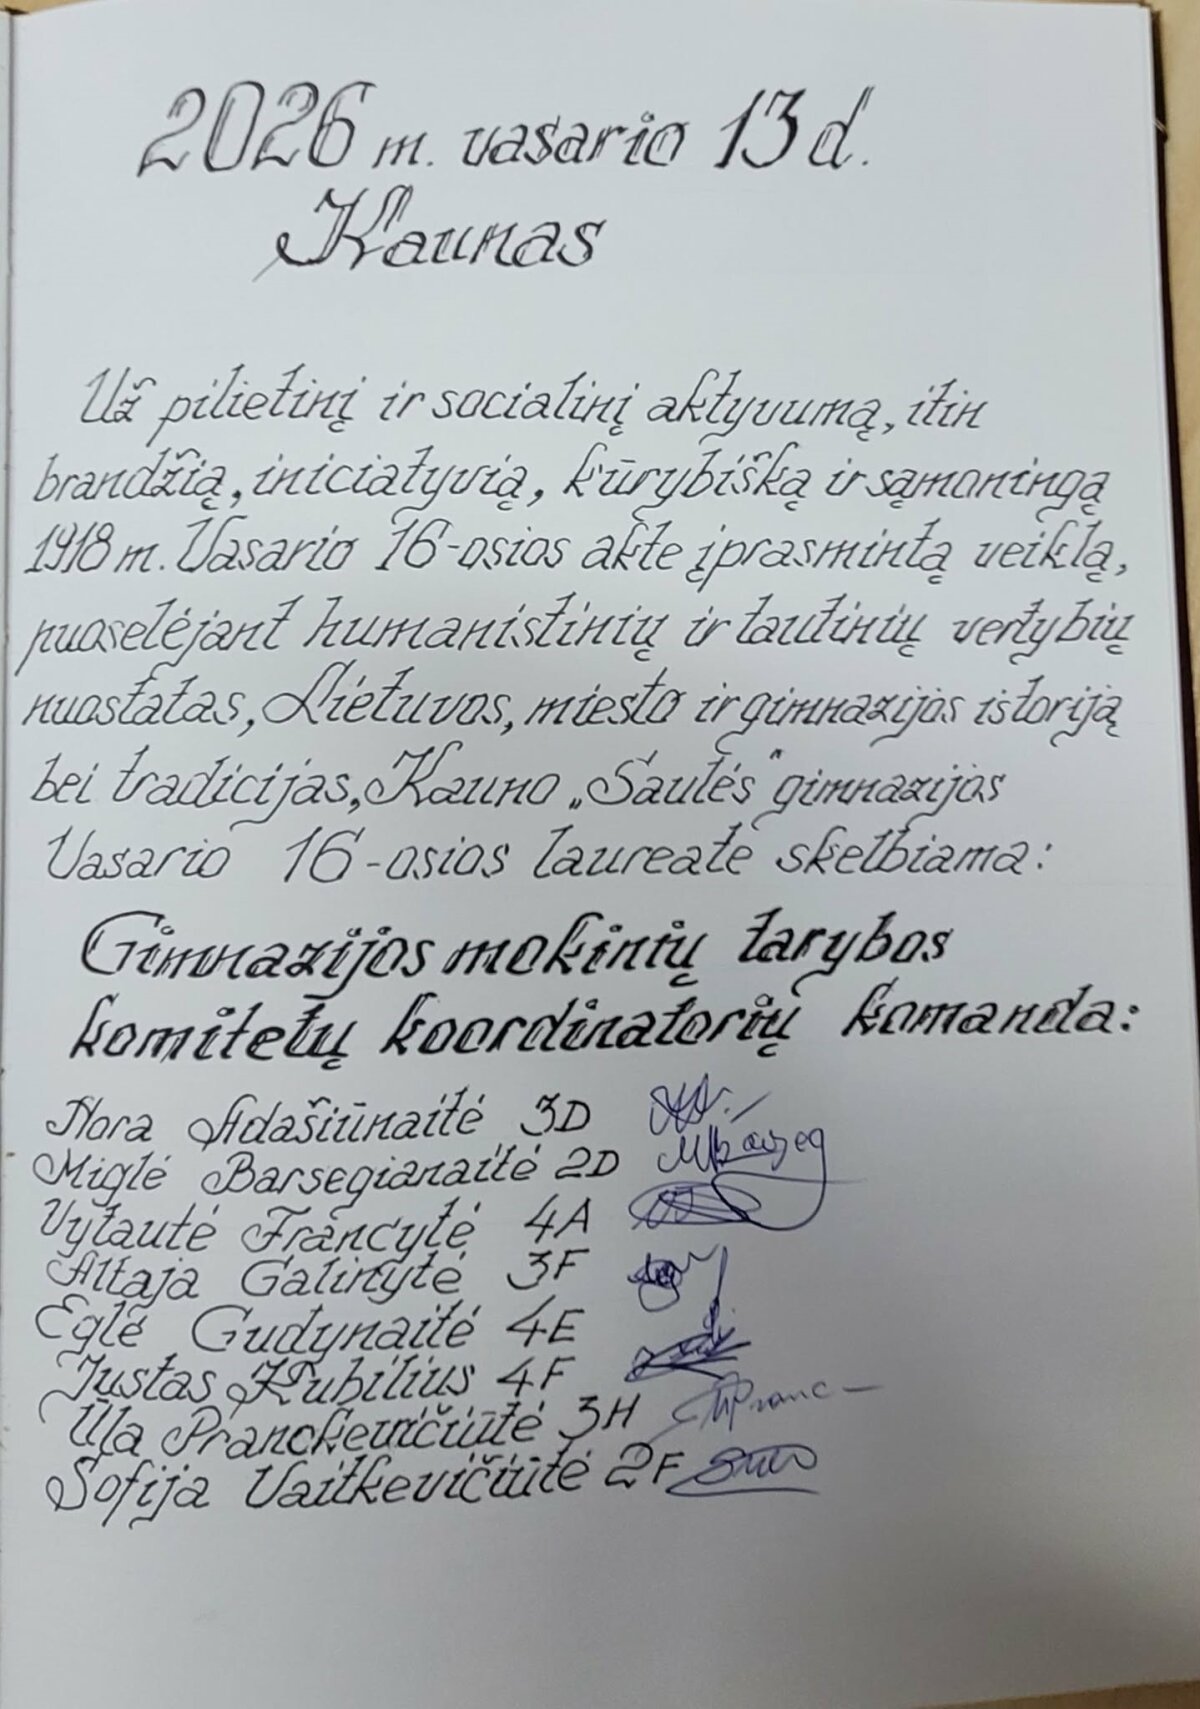 2026 m. vasario 13 d.
Kaunas
Už pilietinį ir socialinį aktyvumą, itin
brandžią, iniciatyvią, kūrybišką ir sąmoningą
1918 m. Vasario 16-osios akte įprasmintą veiklą,
puoselėjant humanistinių ir tautinių vertybių
nuostatas, Lietuvos, miesto ir gimnazijos istoriją
bei tradicijas, Kauno „Saulės“ gimnazijos
Vasario 16-osios laureate skelbiama:
Gimnazijos mokinių tarybos
komitetų koordinatorių komanda:
Nora Adašiūnaitė 3D
Miglė Barsegianaitė 2D
Vytautė Francytė 4A
Altaja Galinytė 3F
Eglė Gudynaitė 4E
Justas Kubilius 4F
Ūla Pranckevičiūtė 3H
Sofija Vaitkevičiūtė 2F